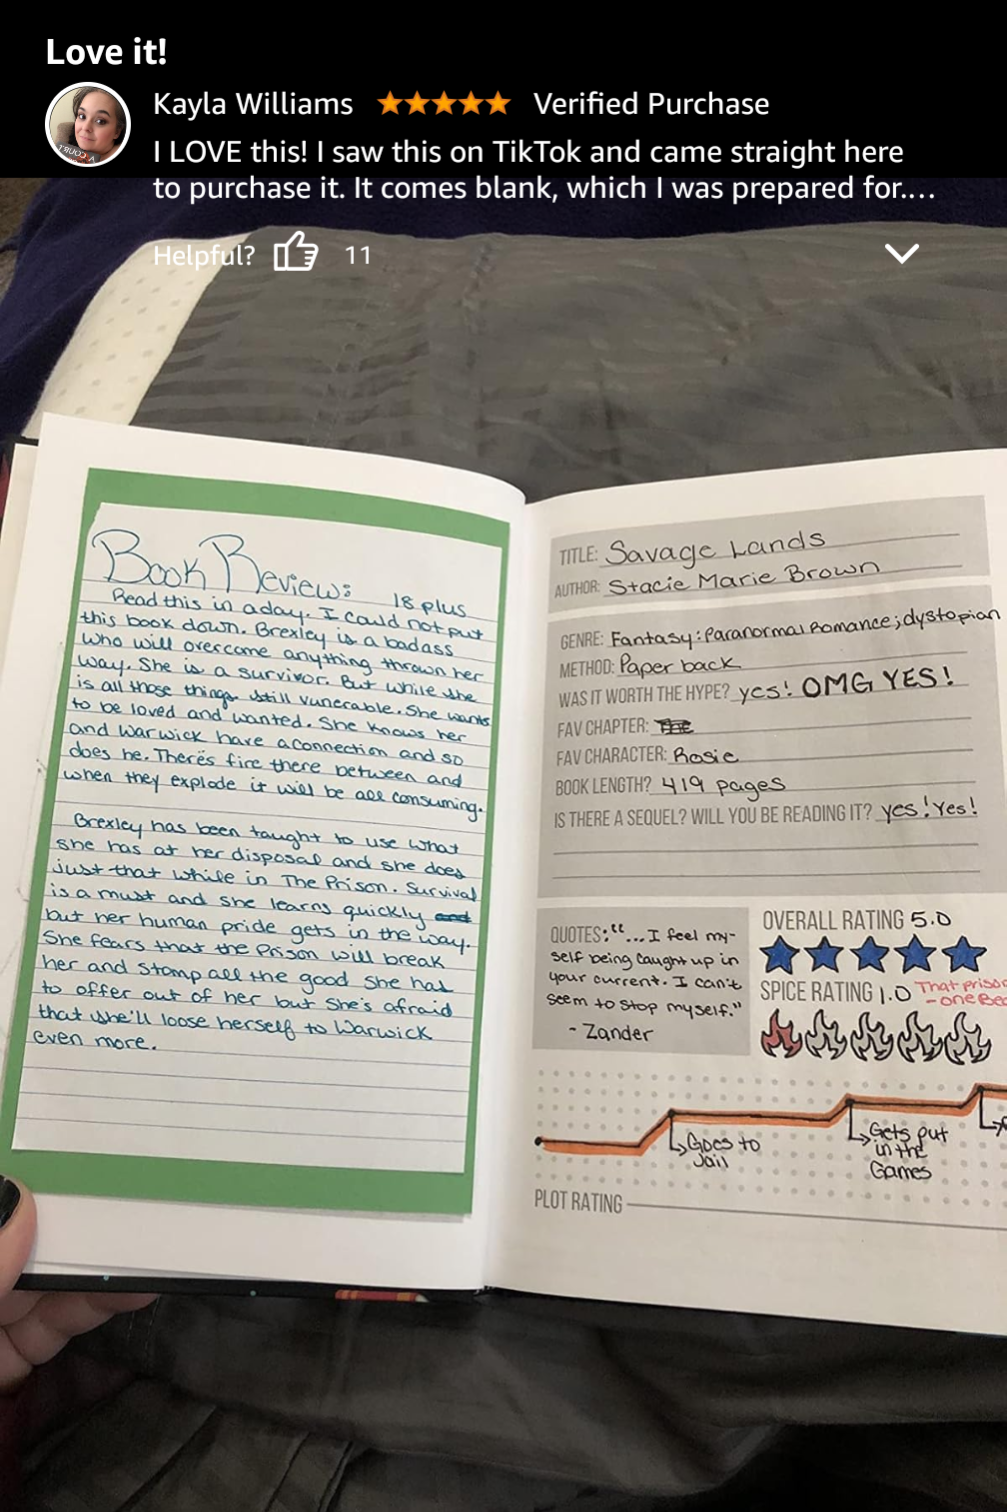 Love it!
Kayla Williams Verified Purchase
I LOVE this! I saw this on TikTok and came straight here
to purchase it. It comes blank, which I was prepared for....
Helpful? 11
Book Review: 18 plus
Read this in a day. I could not put
this book down. Brexley is a badass
who will overcome anything thrown her
way. She is a survivor. But while she
is all those things, still vunerable. She wants
to be loved and wanted. She knows her
and Warwick have a connection and so
does he. There's fire there between and
when they explode it will be all consuming.
Brexley has been taught to use what
she has at her disposal and she does
just that while in The Prison. Survival
is a must and she learns quickly and
but her human pride gets in the way.
She fears that the Prison will break
her and stomp all the good she has
to offer out of her but she's afraid
that she'll loose herself to Warwick
even more.
TITLE: Savage Lands
AUTHOR: Stacie Marie Brown
GENRE: Fantasy: Paranormal Romance; dystopian
METHOD: Paper back
WAS IT WORTH THE HYPE? yes! OMG YES!
FAV CHAPTER: The
FAV CHARACTER: Rosie
BOOK LENGTH? 419 pages
IS THERE A SEQUEL? WILL YOU BE READING IT? yes! Yes!
QUOTES: "...I feel my-
self being caught up in
your current. I can't
seem to stop myself."
- Zander
OVERALL RATING 5.0
SPICE RATING 1.0 That prison
- one
Goes to
Jail
Gets put
in the
Games
PLOT RATING